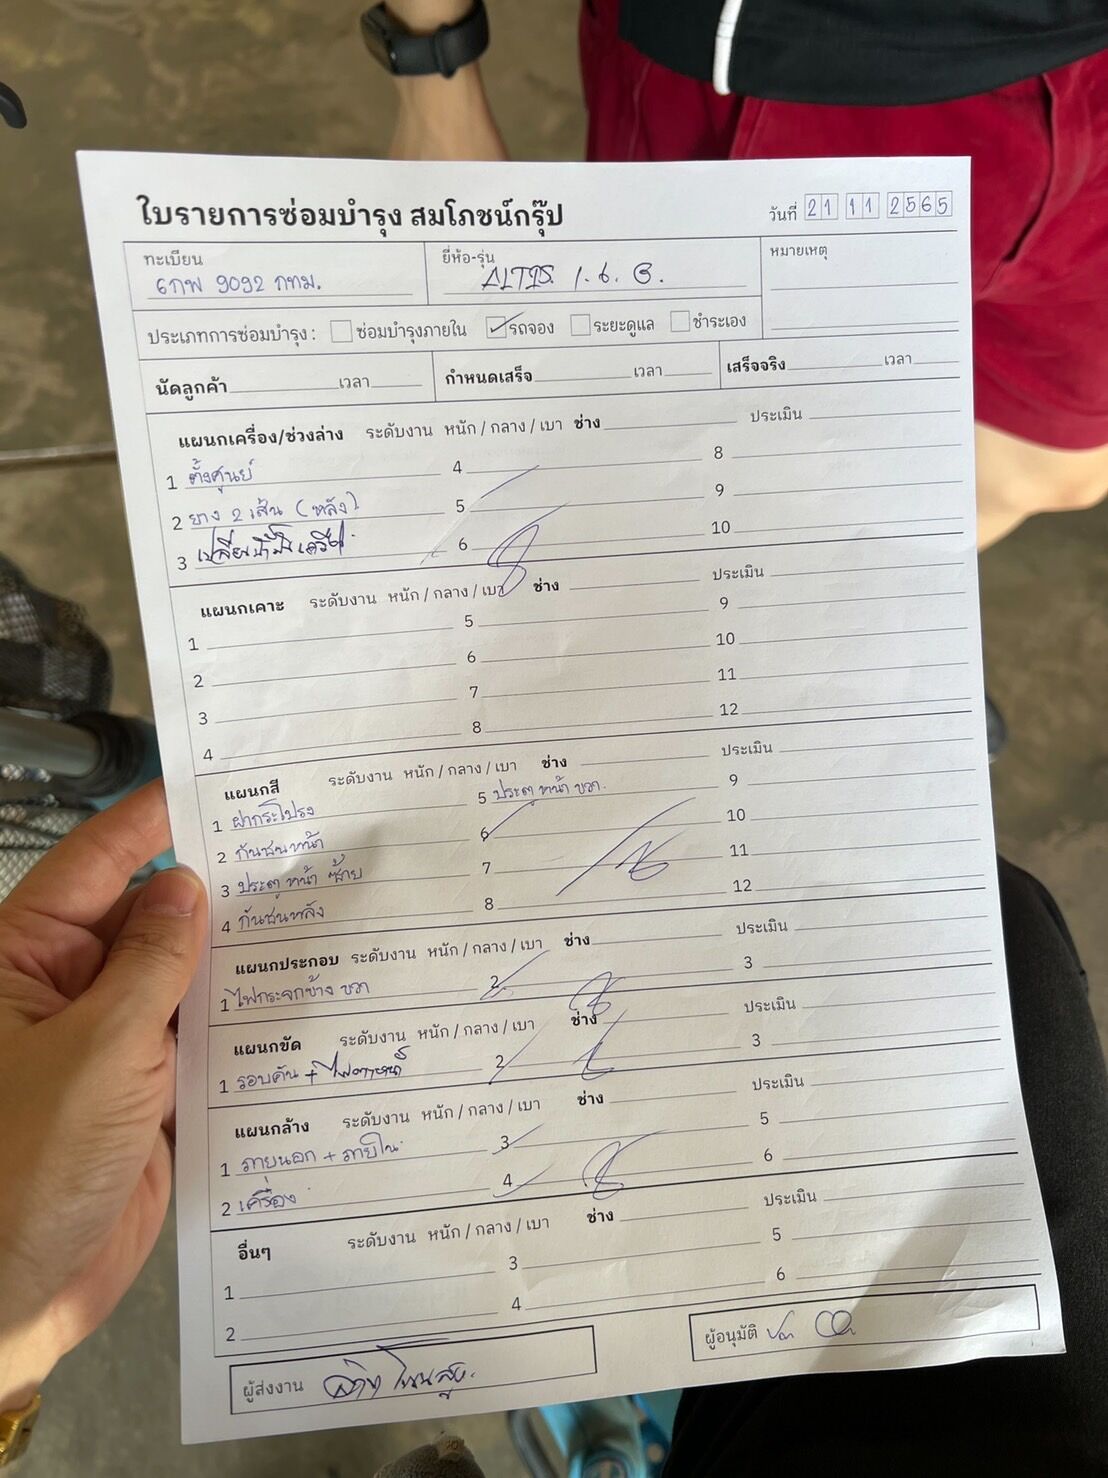 ใบรายการซ่อมบำรุง สมโภชน์กรุ๊ป
วันที่ 21 11 2565
ทะเบียน 6กพ 9092 กทม.
ยี่ห้อ-รุ่น ALTIS. 1.6. G.
หมายเหตุ
ประเภทการซ่อมบำรุง : ซ่อมบำรุงภายใน รถจอง ระยะดูแล ชำระเอง
นัดลูกค้า เวลา กำหนดเสร็จ เวลา เสร็จจริง เวลา
แผนกเครื่อง/ช่วงล่าง ระดับงาน หนัก / กลาง / เบา ช่าง ประเมิน
1 ตั้งศูนย์ 4 8
2 ยาง 2 เส้น (หลัง) 5 9
3 เปลี่ยนน้ำมันเครื่อง. 6 10
แผนกเคาะ ระดับงาน หนัก / กลาง / เบา ช่าง ประเมิน
1 5 9
2 6 10
3 7 11
4 8 12
แผนกสี ระดับงาน หนัก / กลาง / เบา ช่าง ประเมิน
1 ฝากระโปรง 5 ประตู หน้า ขวา. 9
2 กันชนหน้า 6 10
3 ประตู หน้า ซ้าย 7 11
4 กันชนหลัง 8 12
แผนกประกอบ ระดับงาน หนัก / กลาง / เบา ช่าง ประเมิน
1 ไฟกระจกข้าง ขวา 2 3
แผนกขัด ระดับงาน หนัก / กลาง / เบา ช่าง ประเมิน
1 รอบคัน + ไฟตาหน้า 2 3
แผนกล้าง ระดับงาน หนัก / กลาง / เบา ช่าง ประเมิน
1 ภายนอก + ภายใน 3 5
2 เครื่อง 4 6
อื่นๆ ระดับงาน หนัก / กลาง / เบา ช่าง ประเมิน
1 3 5
2 4 6
ผู้ส่งงาน
ผู้อนุมัติ